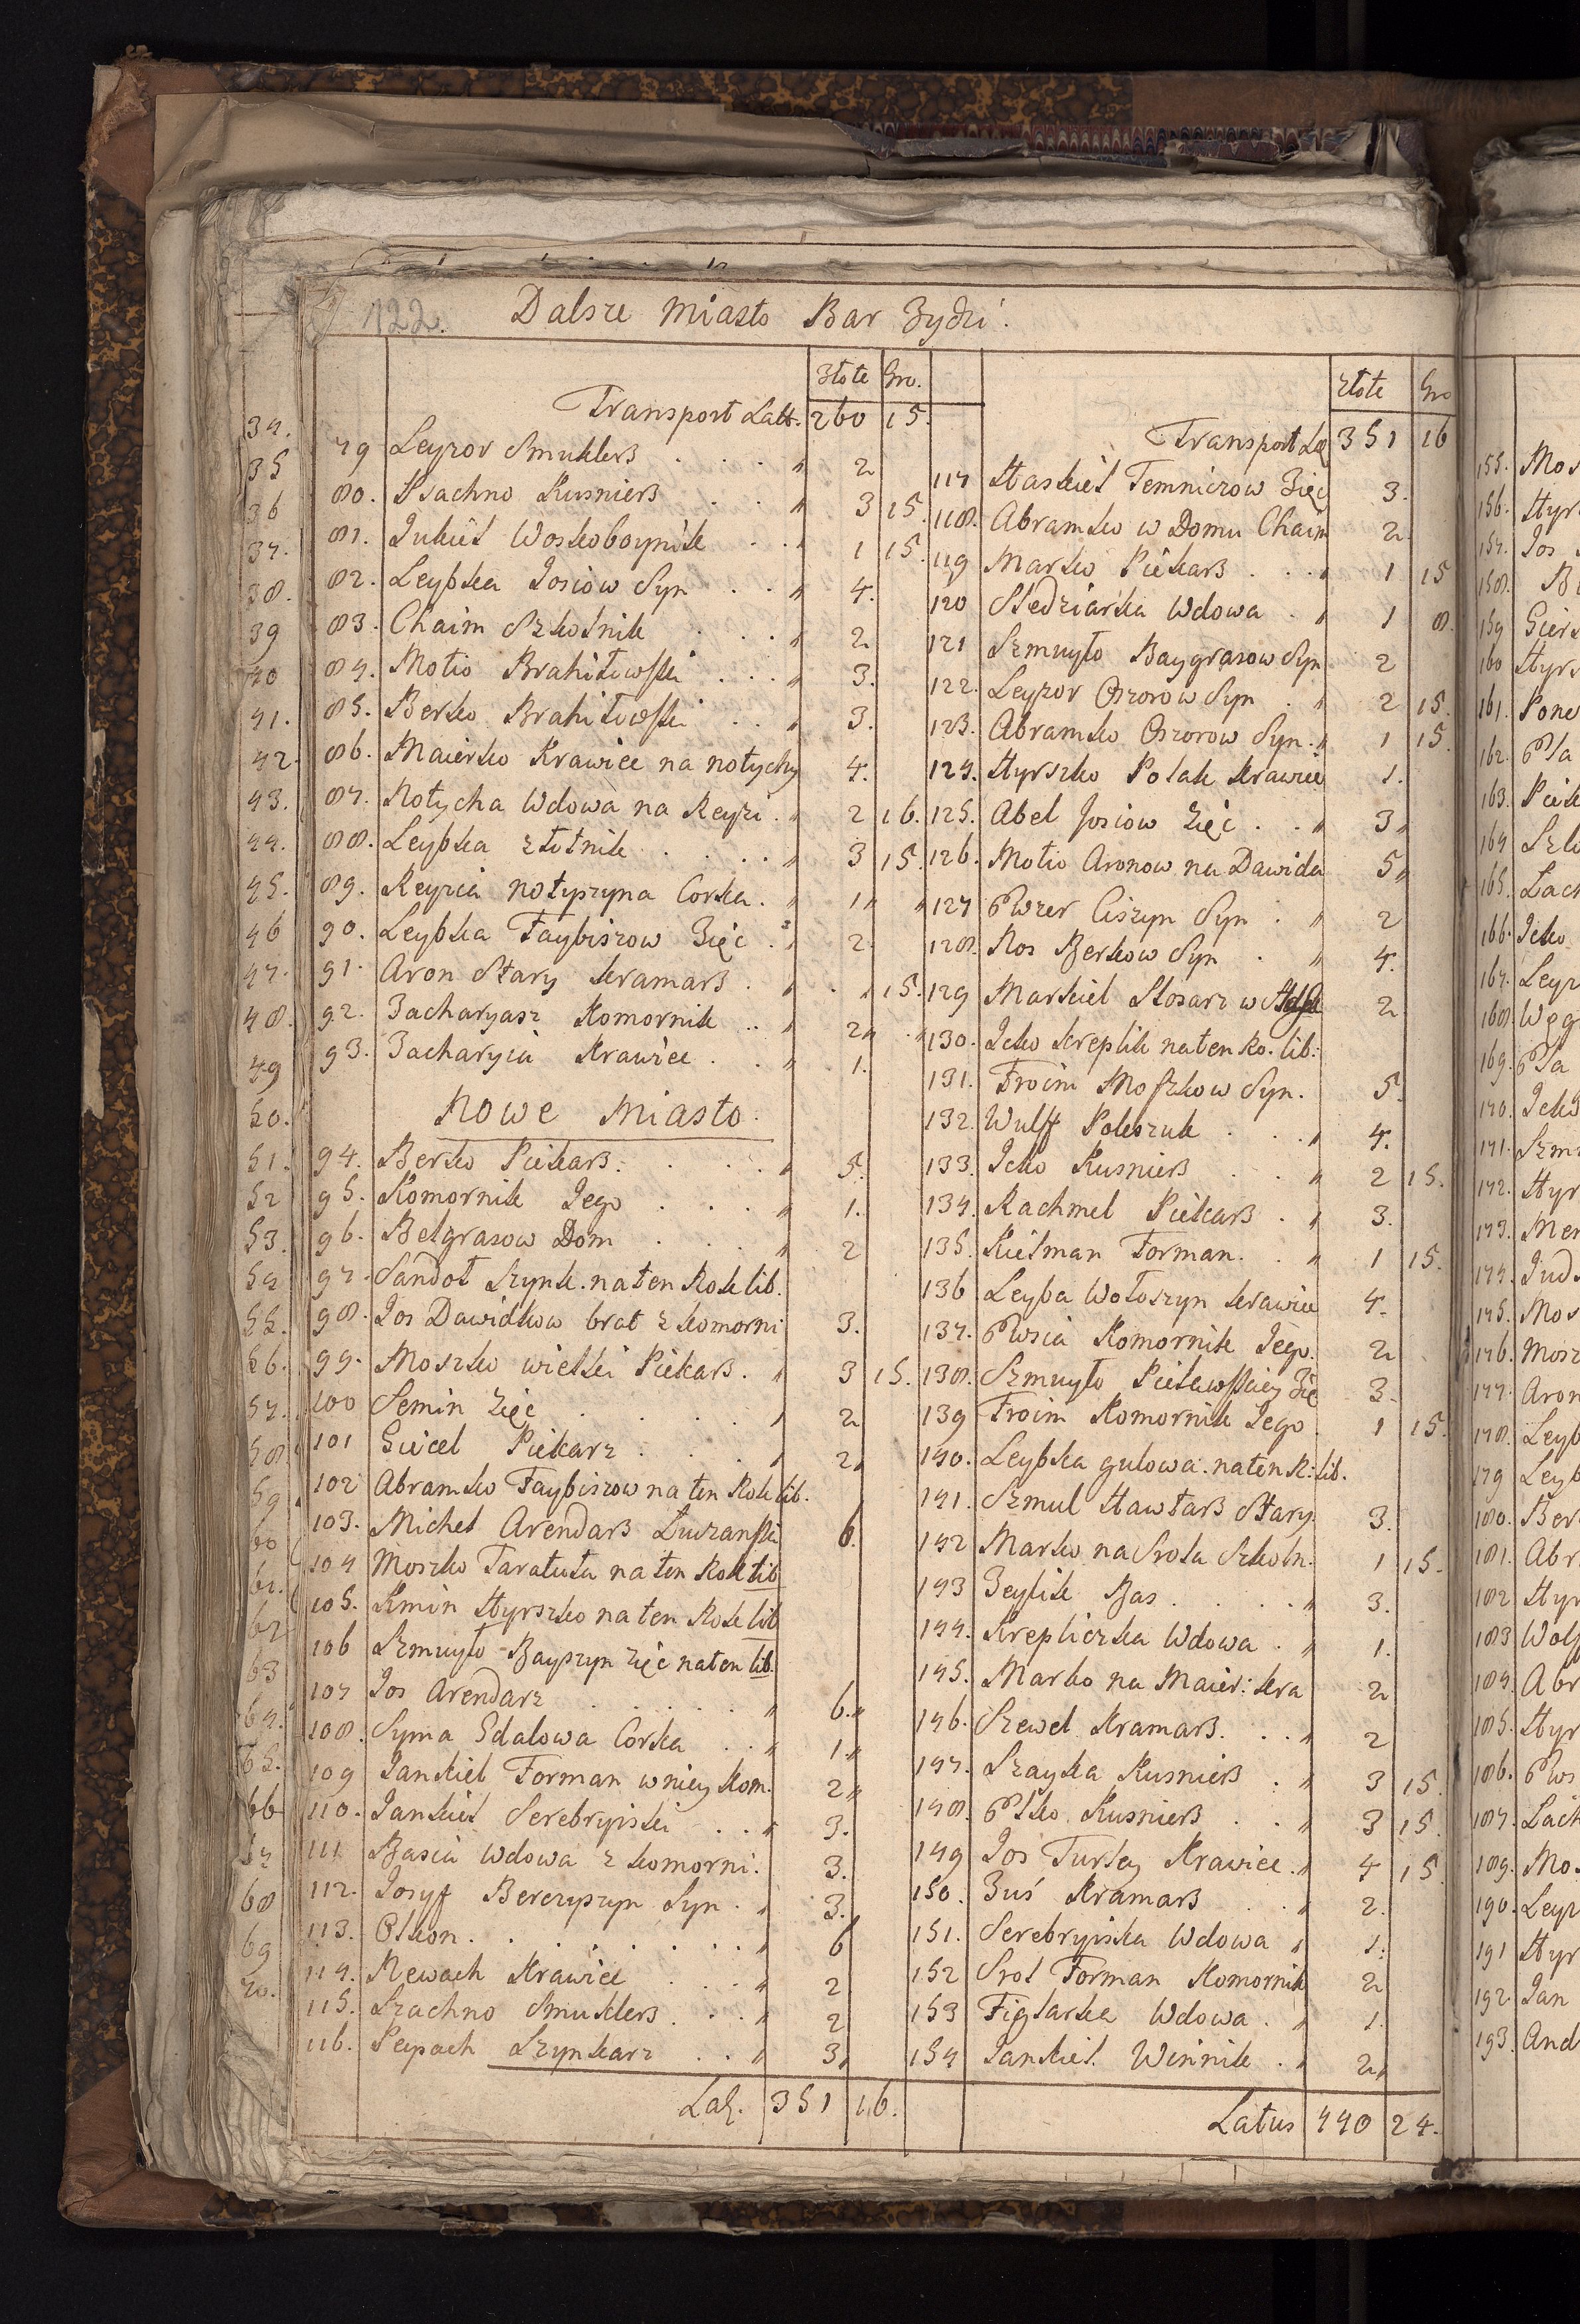 122. Dalsze Miasto Bar Zydzi.
Złote Gro.
Transport Latt. 260 15.
79 Leyzor Smuklerß 2
80. Psachno Kusnierß 3 15.
81. Jukiel Woskoboynik 1 15.
82. Leybka Josiow Syn 4.
83. Chaim Szkolnik 2
84. Motio Brahiłowski 3.
85. Berko Brahiłowski 3.
86. Maierko Krawiec na notychy 4.
87. Notycha Wdowa na Reyzi 2 16.
88. Leybka złotnik 3 15.
89. Reyzia notyszyna Corka 1
90. Leybka Faybiszow Zięć 2
91. Aron Stary kramarß 15.
92. Zacharyasz Komornik 2
93. Zacharyia Krawiec 1.
Nowe Miasto.
94. Berko Piekarß. 5.
95. Komornik Jego 1.
96. Belgrasow Dom 2
97. Sandol Szynk. na ten Rok lib.
98. Jos Dawidkow brat z komorni 3.
99. Moszko wielki Piekarß. 3 15.
100 Semin Zięć 2
101 Giecel Piekarz 2
102 Abramko Faybiszow na ten Rok lib.
103. Michel Arendarß 6.
104 Moszko Taratuta na ten Rok lib
105. Kmin Hyrszko na ten Rok lib
106 Szmuyło Bayszyn zięć na ten lib.
107 Jos Arendarz 6.
108. Syma Edalowa Corka 1
109 Jankiel Forman w niey Kom. 2
110. Jankiel Serebryiski 3.
111 Basia Wdowa z komorni. 3.
112. Josyff Berczyszyn Syn 3.
113. Olkon 6
114. Rewach Krawiec 2
115. Szachno Smuklerß 2
116. Peypach Szynkarz 3
Lat. 351 16.
Złote Gro
Transport Lat 351 16
117 Haskiel Temniczow Zięć 3.
118. Abramko w Domu Chaim 2
119 Marko Piekarß 1 15
120 Sledziarka Wdowa 1 8.
121 Szmuyło Baygrasow Syn 2
122. Leyzor Oszorow Syn 2 15.
123. Abramko Oszorow Syn 1 15.
124. Hyrszko Polak krawiec 1.
125. Abel Josiow Zięć 3
126. Motio Aronow na Dawida 5
127 Owszer Ciszyn Syn 2
128. Nos Berkow Syn 4.
129 Markiel Slosarz w 2
130. Icko kreplik na ten Ro. lib:
131. Froim Moszkow Syn. 5.
132. Wulff Poleszuk 4.
133. Icko Kusnierß 2 15.
134. Rachmel Piekarß 3.
135. Kielman Forman. 1 15.
136 Leyba Wołoszyn krawiec 4.
137. Owsia Komornik Jego. 2
138. Szmuyło 3.
139 Froim Komornik Jego 1 15.
140. Leybka gulowa. na ten R: lib.
141. Szmul Hawłarß Stary 3.
142 Marko na Srola Szkoln. 1 15.
143 Zeylik Bas 3.
144. Krepliczka Wdowa 1.
145. Marko na Maier: kra 2
146. Szewel Kramarß. 2
147. Szayka Kusnierß 3 15.
148. Osko Kusnierß 3 15.
149 Jos Turkey Krawiec 4 15.
150. Zuś Kramarß 2.
151. Serebryiska Wdowa 1.
152 Srol Forman Komornik 2
153 Figlarka Wdowa 1.
154 Jankiel Winnik 2
Latus 440 24.
34.
35
36
37.
38.
39
40
41.
42.
43.
44.
45.
46
47.
48.
49
50.
51.
52
53.
54
55.
56.
57.
58
59
60
61.
62
63
64.
65.
66
67
68
69
70.
155. Mos
156. Hyr
157. Jos
158.
159 Giers
160 Hyrs
161.
162.
163. Piek
164
165.
166. Icko
167. Leyz
168.
169.
170. Ick
171. Szm
172. Hyr
173. Mer
174. Jud
175. Mos
176. Mosz
177. Aron
178. Leyb
179 Leyb
180. Ber
181. Abr
182 Hyr
183 Wolf
184. Abr
185. Hyr
186. Ows
187. Lach
189. Mos
190. Leyz
191 Hyr
192. Jan
193. And